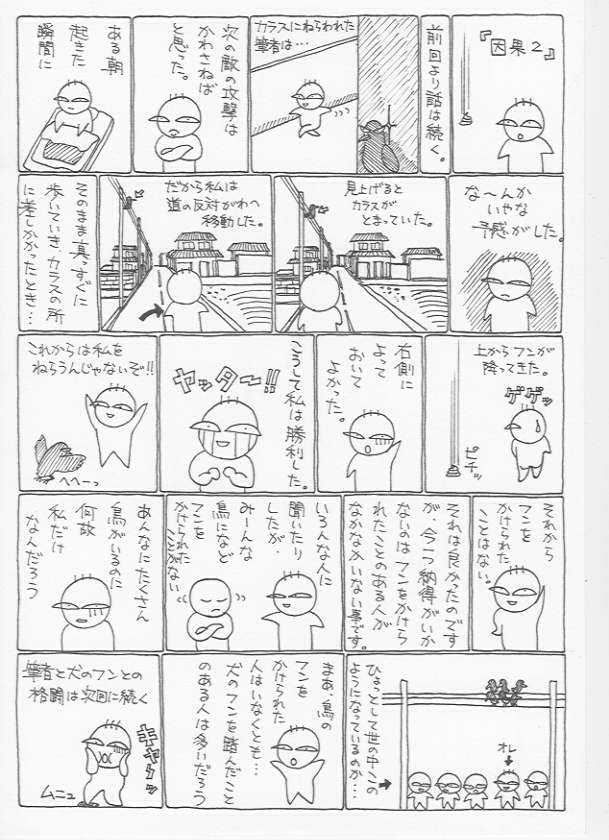 『因果2』
前回より話は続く。
カラスにねらわれた
筆者は…
次の敵の攻撃は
かわさねば
と思った。
ある朝
起きた
瞬間に
な〜んか
いやな
予感がした。
見上げると
カラスが
とまっていた。
だから私は
道の反対がわへ
移動した。
そのまま真っすぐに
歩いていき、カラスの所
に差しかかったとき…
上からフンが
降ってきた。
ゲゲッ
ピチッ
右側に
よって
おいて
よかった。
こうして私は勝利した。
ヤッター!!
これからは私を
ねらうんじゃないぞ!!
へへーっ
それから
フンを
かけられた
ことはない。
それは良かったのです
が、今一つ納得がいか
ないのはフンをかけら
れたことのある人が
なかなかいない事です。
いろんな人に
聞いたり
したが、
みーんな
鳥になど
フンを
かけられた
ことがない
あんなにたくさん
鳥がいるのに
何故
私だけ
なんだろう
ひょっとして世の中このよ
うになっているのか…
オレ
まあ、鳥の
フンを
かけられた
人はいなくとも…
犬のフンを踏んだこと
のある人は多いだろう
筆者と犬のフンとの
格闘は次回に続く
キャーッ
ムニュ